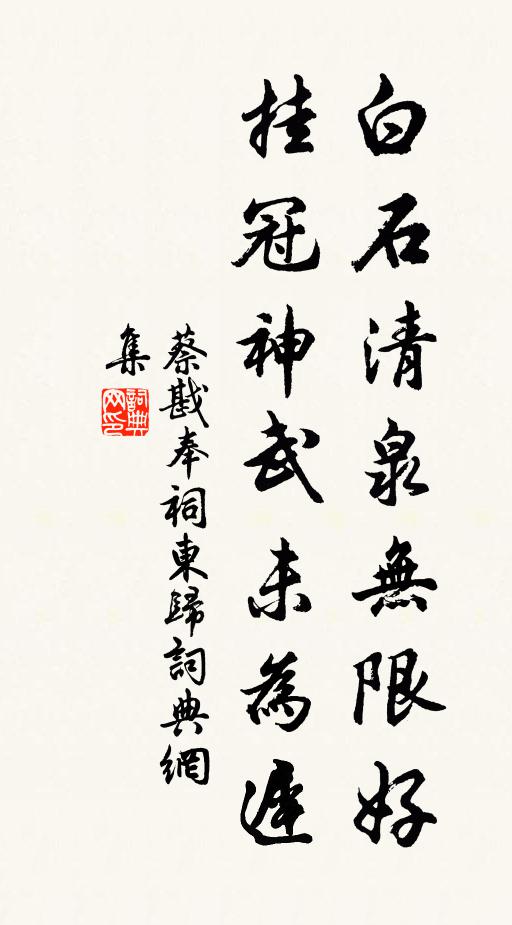 白石清泉無限好
挂冠神武未為遲
蔡戡奉祠東歸詞典網
集
詞典网印